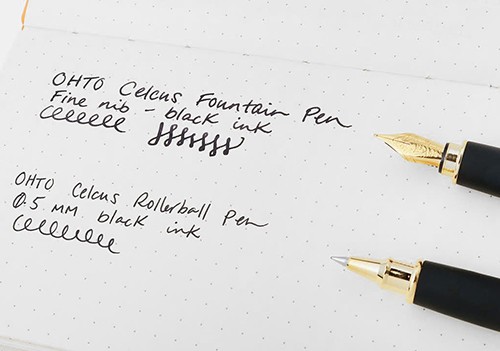 OHTO Celcus Fountain Pen
Fine nib - black ink
OHTO Celcus Rollerball Pen
0.5 MM black ink